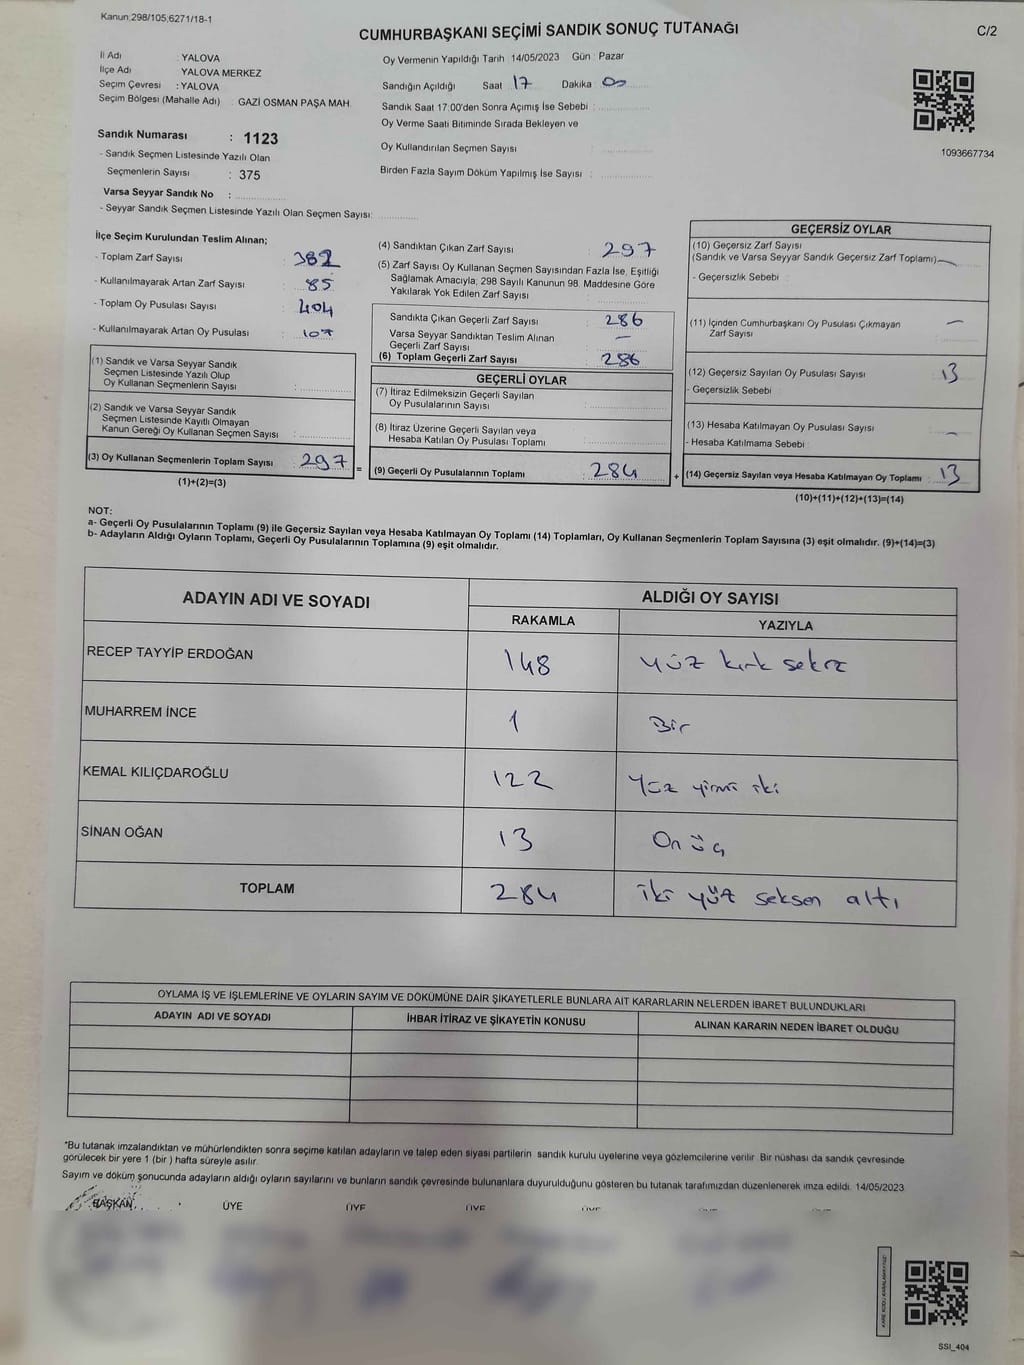 Kanun;298/105;6271/18-1
CUMHURBAŞKANI SEÇİMİ SANDIK SONUÇ TUTANAĞI
C/2
İl Adı : YALOVA
İlçe Adı : YALOVA MERKEZ
Seçim Çevresi : YALOVA
Seçim Bölgesi (Mahalle Adı) : GAZİ OSMAN PAŞA MAH.
Oy Vermenin Yapıldığı Tarih 14/05/2023 Gün : Pazar
Sandığın Açıldığı Saat 17 Dakika 00
Sandık Saat 17:00'den Sonra Açımış İse Sebebi :
Oy Verme Saati Bitiminde Sırada Bekleyen ve
Oy Kullandırılan Seçmen Sayısı :
Birden Fazla Sayım Döküm Yapılmış İse Sayısı :
1093667734
Sandık Numarası : 1123
- Sandık Seçmen Listesinde Yazılı Olan
Seçmenlerin Sayısı : 375
Varsa Seyyar Sandık No :
- Seyyar Sandık Seçmen Listesinde Yazılı Olan Seçmen Sayısı:
İlçe Seçim Kurulundan Teslim Alınan;
- Toplam Zarf Sayısı : 382
- Kullanılmayarak Artan Zarf Sayısı : 85
- Toplam Oy Pusulası Sayısı : 404
- Kullanılmayarak Artan Oy Pusulası : 107
(1) Sandık ve Varsa Seyyar Sandık
Seçmen Listesinde Yazılı Olup
Oy Kullanan Seçmenlerin Sayısı :
(2) Sandık ve Varsa Seyyar Sandık
Seçmen Listesinde Kayıtlı Olmayan
Kanun Gereği Oy Kullanan Seçmen Sayısı :
(3) Oy Kullanan Seçmenlerin Toplam Sayısı : 297
(1)+(2)=(3)
=
(4) Sandıktan Çıkan Zarf Sayısı : 297
(5) Zarf Sayısı Oy Kullanan Seçmen Sayısından Fazla İse, Eşitliği
Sağlamak Amacıyla; 298 Sayılı Kanunun 98. Maddesine Göre
Yakılarak Yok Edilen Zarf Sayısı :
Sandıkta Çıkan Geçerli Zarf Sayısı : 286
Varsa Seyyar Sandıktan Teslim Alınan
Geçerli Zarf Sayısı : —
(6) Toplam Geçerli Zarf Sayısı : 286
GEÇERLİ OYLAR
(7) İtiraz Edilmeksizin Geçerli Sayılan
Oy Pusulalarının Sayısı :
(8) İtiraz Üzerine Geçerli Sayılan veya
Hesaba Katılan Oy Pusulası Toplamı :
(9) Geçerli Oy Pusulalarının Toplamı : 284
+
GEÇERSİZ OYLAR
(10) Geçersiz Zarf Sayısı
(Sandık ve Varsa Seyyar Sandık Geçersiz Zarf Toplamı) : —
- Geçersizlik Sebebi :
(11) İçinden Cumhurbaşkanı Oy Pusulası Çıkmayan
Zarf Sayısı : —
(12) Geçersiz Sayılan Oy Pusulası Sayısı : 13
- Geçersizlik Sebebi :
(13) Hesaba Katılmayan Oy Pusulası Sayısı : —
- Hesaba Katılmama Sebebi :
(14) Geçersiz Sayılan veya Hesaba Katılmayan Oy Toplamı : 13
(10)+(11)+(12)+(13)=(14)
NOT:
a- Geçerli Oy Pusulalarının Toplamı (9) ile Geçersiz Sayılan veya Hesaba Katılmayan Oy Toplamı (14) Toplamları, Oy Kullanan Seçmenlerin Toplam Sayısına (3) eşit olmalıdır. (9)+(14)=(3)
b- Adayların Aldığı Oyların Toplamı, Geçerli Oy Pusulalarının Toplamına (9) eşit olmalıdır.
ADAYIN ADI VE SOYADI
ALDIĞI OY SAYISI
RAKAMLA YAZIYLA
RECEP TAYYİP ERDOĞAN 148 yüz kırk sekiz
MUHARREM İNCE 1 Bir
KEMAL KILIÇDAROĞLU 122 Yüz yirmi iki
SİNAN OĞAN 13 On üç
TOPLAM 284 iki yüz seksen altı
OYLAMA İŞ VE İŞLEMLERİNE VE OYLARIN SAYIM VE DÖKÜMÜNE DAİR ŞİKAYETLERLE BUNLARA AİT KARARLARIN NELERDEN İBARET BULUNDUKLARI
ADAYIN ADI VE SOYADI İHBAR İTİRAZ VE ŞİKAYETİN KONUSU ALINAN KARARIN NEDEN İBARET OLDUĞU
*Bu tutanak imzalandıktan ve mühürlendikten sonra seçime katılan adayların ve talep eden siyasi partilerin sandık kurulu üyelerine veya gözlemcilerine verilir. Bir nüshası da sandık çevresinde
görülecek bir yere 1 (bir ) hafta süreyle asılır.
Sayım ve döküm sonucunda adayların aldığı oyların sayılarını ve bunların sandık çevresinde bulunanlara duyurulduğunu gösteren bu tutanak tarafımızdan düzenlenerek imza edildi. 14/05/2023
BAŞKAN ÜYE ÜYE ÜYE
SSI_404